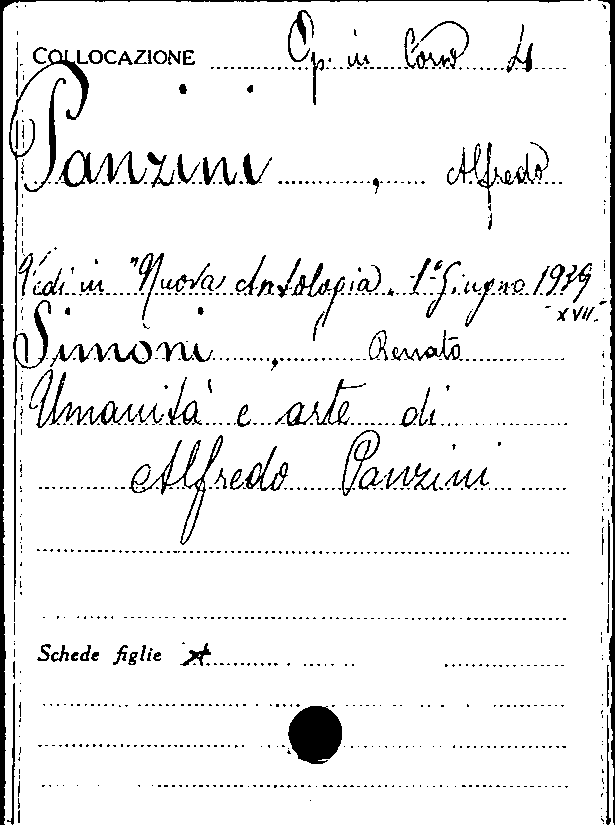 COLLOCAZIONE Op. in Corso 4
Panzini, Alfredo
Vedi in "Nuova Antologia. 1° Giugno 1939
XVII.
Simoni, Renato
Umanità e arte di
Alfredo Panzini
Schede figlie